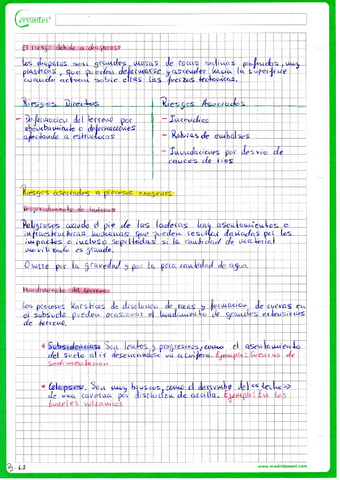 Cervantes
El riesgo debido a diapiros
Los diapiros son grandes masas de rocas salinas profundas, muy
plásticas, que pueden deformarse y ascender hacia la superficie
cuando actúan sobre ellas las fuerzas tectónicas.
Riesgos Directos
- Deformación del terreno por
abombamiento o deformaciones
afectando a estructuras
Riesgos Asociados
- Incendios
- Roturas de embalses
- Inundaciones por desvío de
cauces de ríos
Riesgos asociados a procesos exógenos
Desprendimiento de laderas
Peligrosos cuando el pie de las laderas hay asentamientos o
infraestructuras humanas que pueden resultar dañadas por los
impactos o incluso sepultadas si la cantidad de material
movilizado es grande.
Ocurre por la gravedad y por la poca cantidad de agua
Hundimiento del terreno
Los procesos kársticos de disolución de rocas y formación de cuevas en
el subsuelo pueden ocasionar el hundimiento de grandes extensiones
de terreno.
• Subsidencias: Son lentos y progresivos, como el asentamiento
del suelo al ir desecándose un acuífero. Ejemplo: Cuencas de
sedimentación
• Colapsos: Son muy bruscos, como el derrumbe del <<techo>>
de una caverna por disolución de arcilla. Ejemplo: En los
túneles volcánicos
www.madridpapel.com